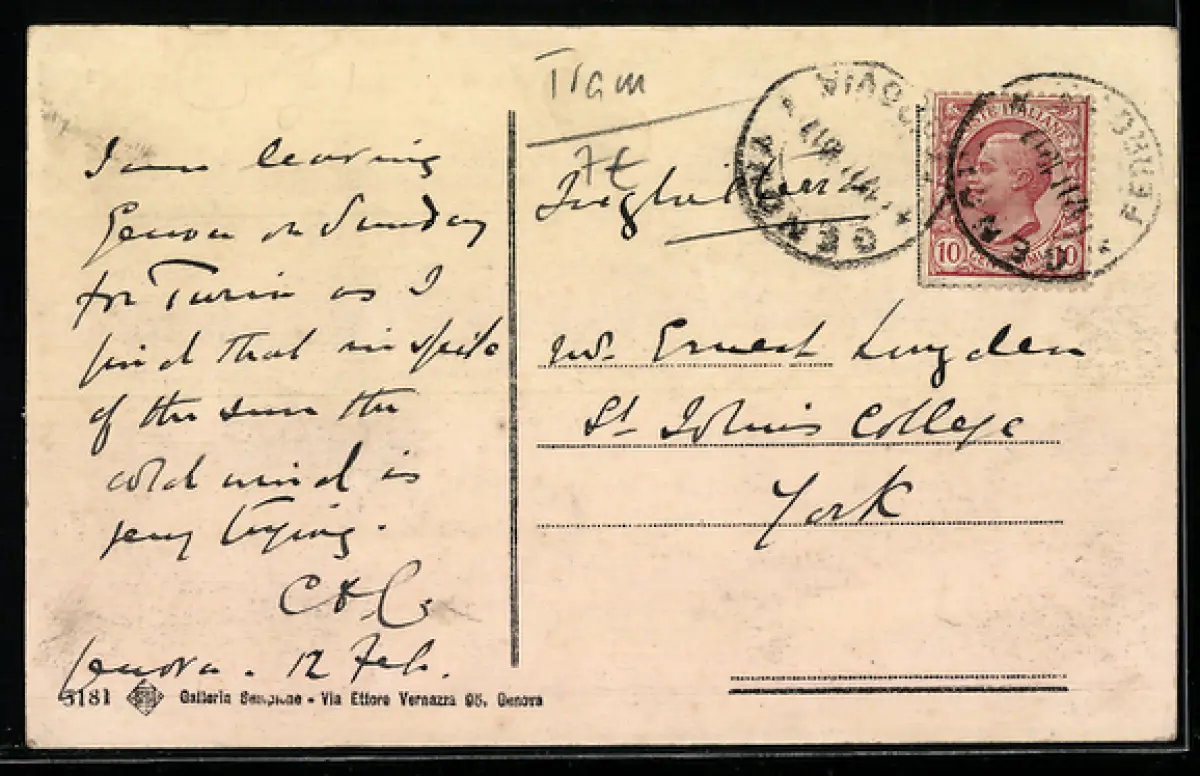 Tram
7€
Inghilterra
I am leaving
Genova on Sunday
for Turin as I
find that in spite
of the sun the
cold wind is
very trying.
Genova. 12 Feb.
Mr. Ernest
St Johns College
York
POSTE ITALIANE
10 CENTESIMI 10
GENOVA
GENOVA
5181 Galleria Sempione - Via Ettore Vernazza 95, Genova